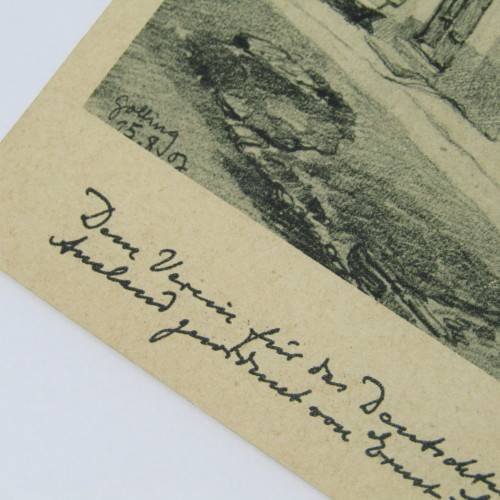 Golling
15.8.07
Dem Verein für das Deutscht
Ausland gewidmet von Ernst